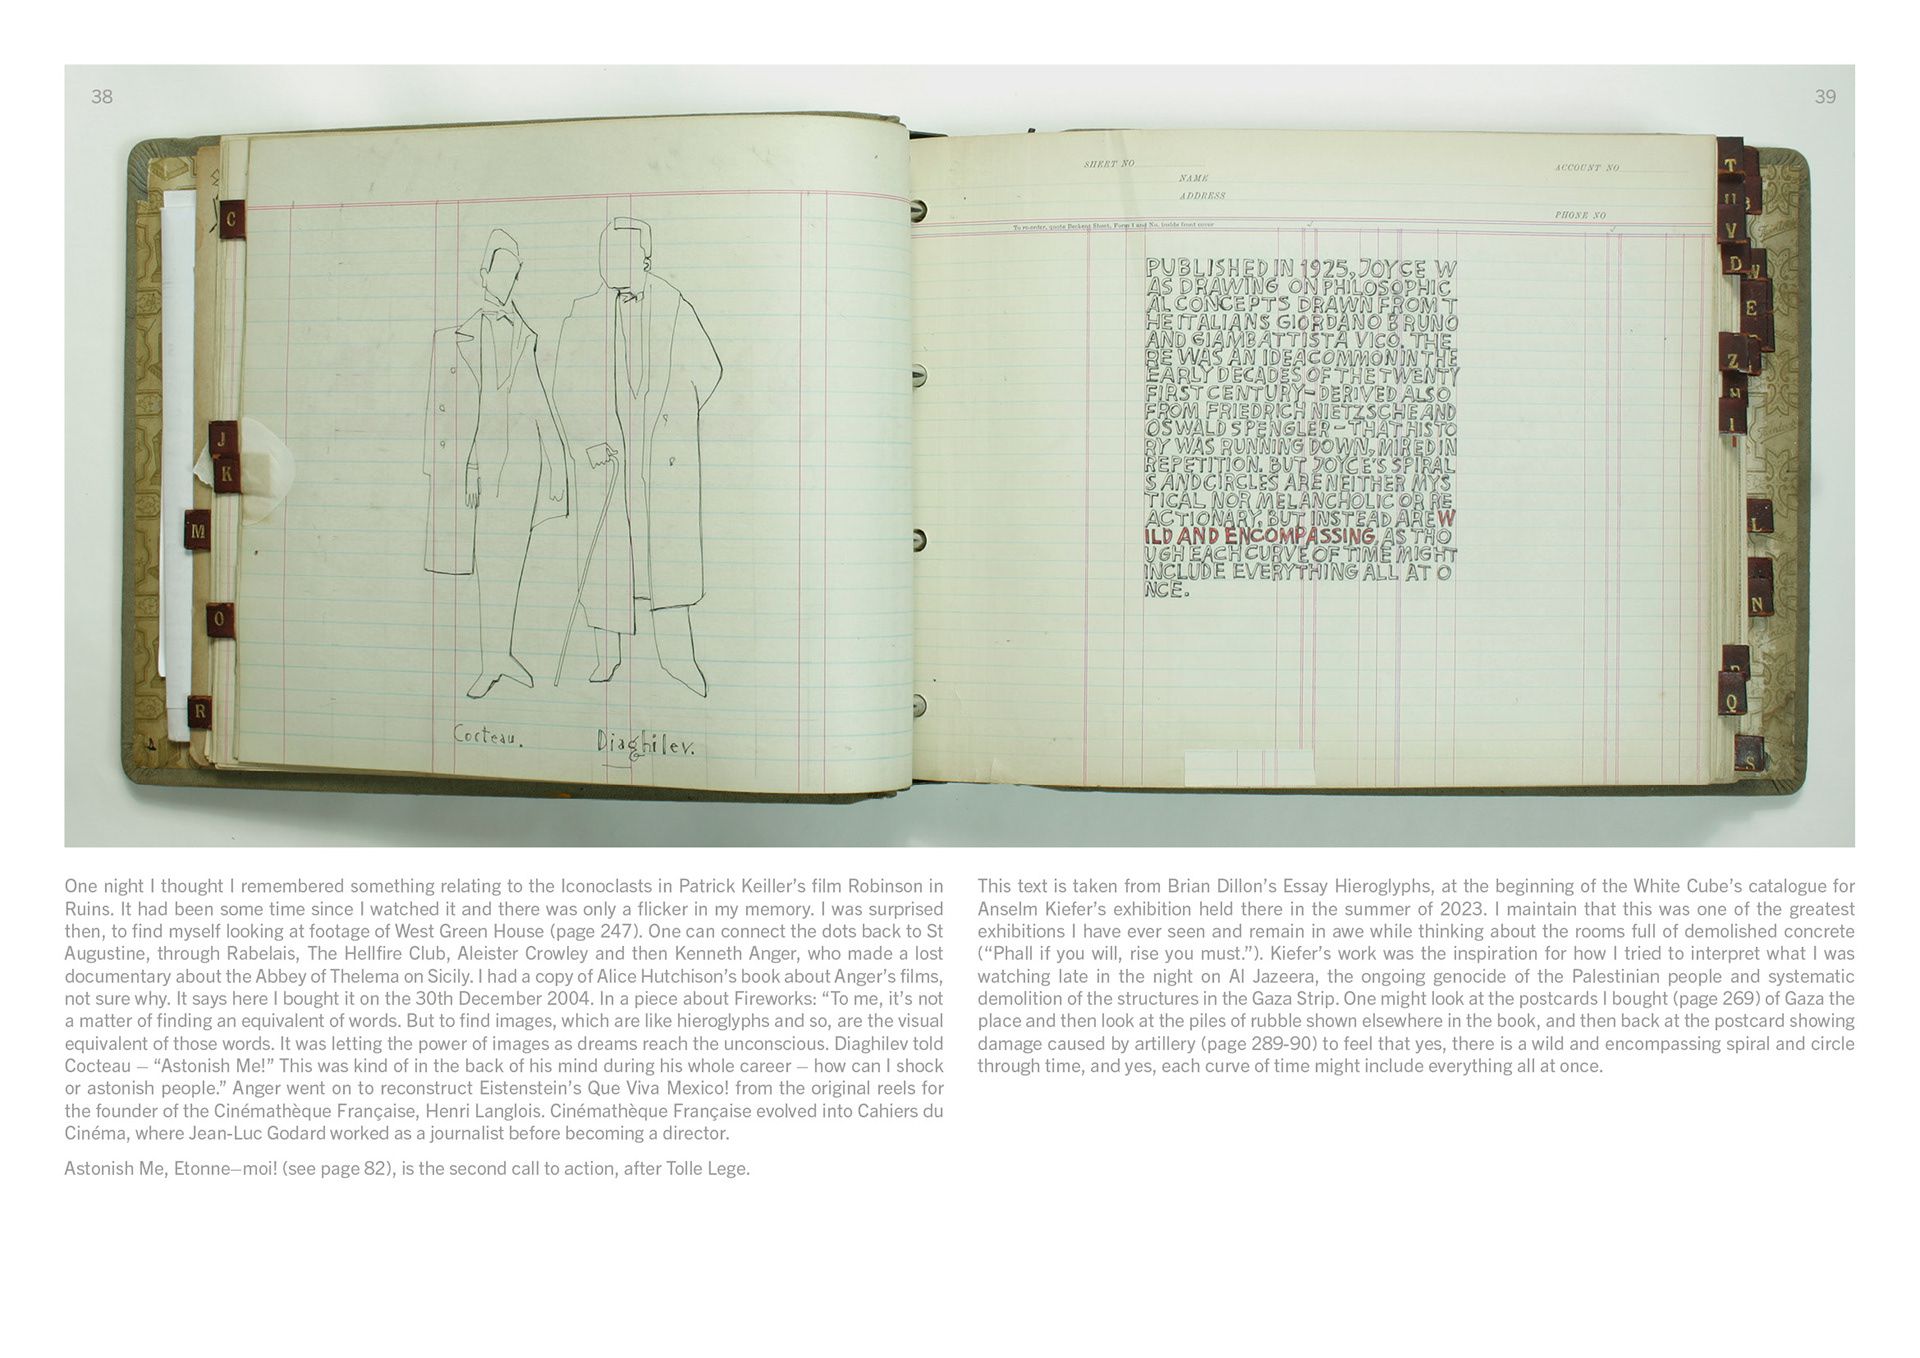 38
39
C
J
K
M
O
R
Cocteau.
Diaghilev.
SHEET NO
ACCOUNT NO
NAME
ADDRESS
PHONE NO
To re-order, quote Beckend Sheet, Form 1 and No. inside front cover
PUBLISHED IN 1925, JOYCE W
AS DRAWING ON PHILOSOPHIC
AL CONCEPTS DRAWN FROM T
HE ITALIANS GIORDANO BRUNO
AND GIAMBATTISTA VICO. THE
RE WAS AN IDEA COMMON IN THE
EARLY DECADES OF THE TWENTY
FIRST CENTURY – DERIVED ALSO
FROM FRIEDRICH NIETZSCHE AND
OSWALD SPENGLER – THAT HISTO
RY WAS RUNNING DOWN, MIRED IN
REPETITION. BUT JOYCE'S SPIRAL
S AND CIRCLES ARE NEITHER MYS
TICAL NOR MELANCHOLIC OR RE
ACTIONARY, BUT INSTEAD ARE W
ILD AND ENCOMPASSING, AS THO
UGH EACH CURVE OF TIME MIGHT
INCLUDE EVERYTHING ALL AT O
NCE.
T
U
V
D
W
E
Z
H
I
L
N
P
Q
S
One night I thought I remembered something relating to the Iconoclasts in Patrick Keiller’s film Robinson in
Ruins. It had been some time since I watched it and there was only a flicker in my memory. I was surprised
then, to find myself looking at footage of West Green House (page 247). One can connect the dots back to St
Augustine, through Rabelais, The Hellfire Club, Aleister Crowley and then Kenneth Anger, who made a lost
documentary about the Abbey of Thelema on Sicily. I had a copy of Alice Hutchison’s book about Anger’s films,
not sure why. It says here I bought it on the 30th December 2004. In a piece about Fireworks: “To me, it’s not
a matter of finding an equivalent of words. But to find images, which are like hieroglyphs and so, are the visual
equivalent of those words. It was letting the power of images as dreams reach the unconscious. Diaghilev told
Cocteau – “Astonish Me!” This was kind of in the back of his mind during his whole career – how can I shock
or astonish people.” Anger went on to reconstruct Eistenstein’s Que Viva Mexico! from the original reels for
the founder of the Cinémathèque Française, Henri Langlois. Cinémathèque Française evolved into Cahiers du
Cinéma, where Jean-Luc Godard worked as a journalist before becoming a director.
Astonish Me, Etonne–moi! (see page 82), is the second call to action, after Tolle Lege.
This text is taken from Brian Dillon’s Essay Hieroglyphs, at the beginning of the White Cube’s catalogue for
Anselm Kiefer’s exhibition held there in the summer of 2023. I maintain that this was one of the greatest
exhibitions I have ever seen and remain in awe while thinking about the rooms full of demolished concrete
(“Phall if you will, rise you must.”). Kiefer’s work was the inspiration for how I tried to interpret what I was
watching late in the night on Al Jazeera, the ongoing genocide of the Palestinian people and systematic
demolition of the structures in the Gaza Strip. One might look at the postcards I bought (page 269) of Gaza the
place and then look at the piles of rubble shown elsewhere in the book, and then back at the postcard showing
damage caused by artillery (page 289-90) to feel that yes, there is a wild and encompassing spiral and circle
through time, and yes, each curve of time might include everything all at once.